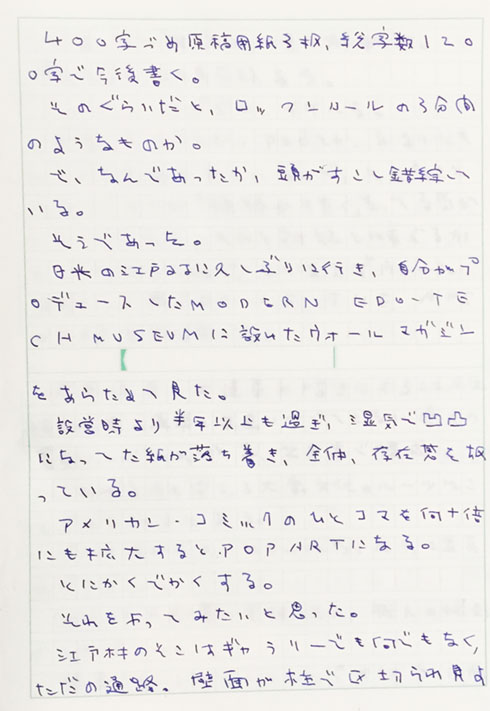 400字づめ原稿用紙3枚、総字数120
0字で今後書く。
そのぐらいだと、ロックンロールの3分間
のようなものか。
で、なんであったか、頭がすこし錯綜して
いる。
そうであった。
日光の江戸村に久しぶりに行き、自分がプ
ロデュースしたMODERN EDO-TE
CH MUSEUMに設けたウォールマガジン
をあらためて見た。
設営時より半年以上も過ぎ、湿気で凹凸
になってた紙が落ち着き、全体、存在感を放
っている。
アメリカン・コミックのひとコマを何十倍
にも拡大するとPOP ARTになる。
とにかくでかくする。
それをやってみたいと思った。
江戸村のそこはギャラリーでも何でもなく、
ただの通路。壁面が柱で区切られ見よ